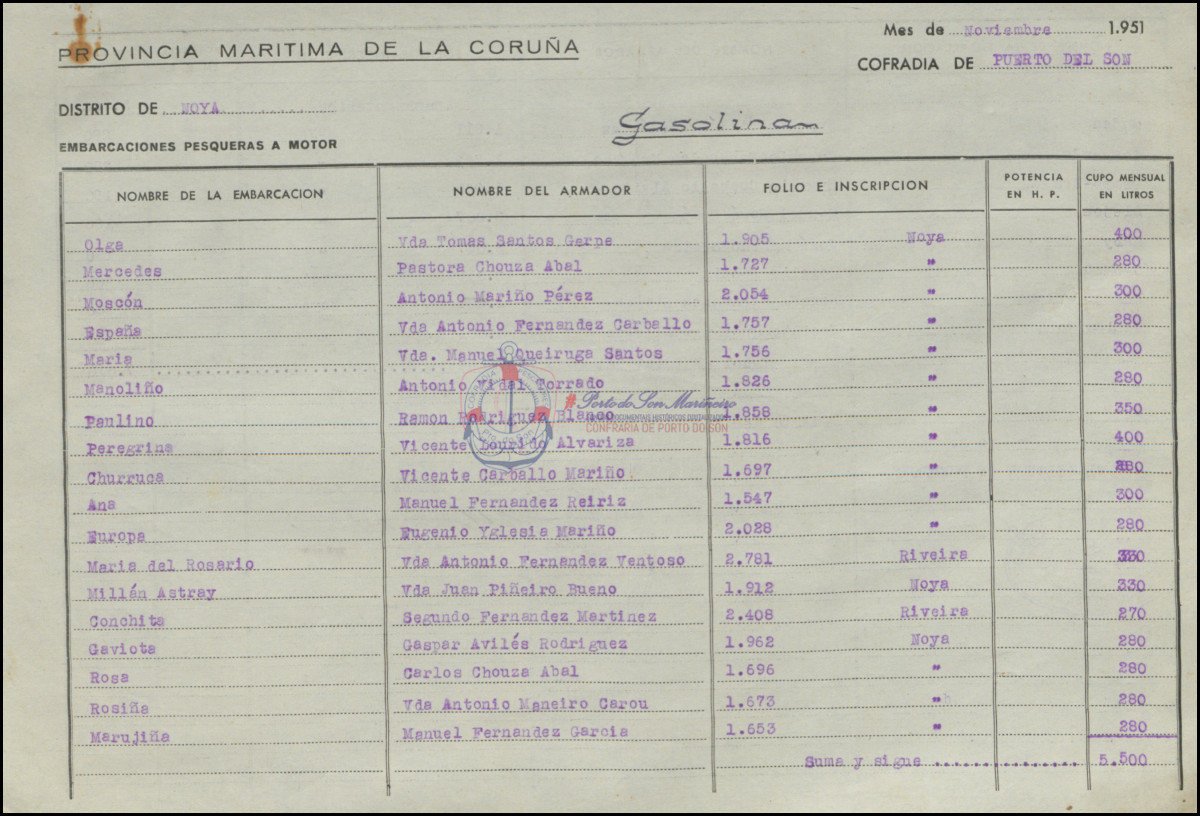 PROVINCIA MARITIMA DE LA CORUÑA
Mes de Noviembre 1.951
COFRADIA DE PUERTO DEL SON
DISTRITO DE NOYA
Gasolina
EMBARCACIONES PESQUERAS A MOTOR
NOMBRE DE LA EMBARCACION NOMBRE DEL ARMADOR FOLIO E INSCRIPCION POTENCIA EN H. P. CUPO MENSUAL EN LITROS
Olga Vda Tomas Santos Gerpe 1.905 Noya 400
Mercedes Pastora Chouza Abal 1.727 " 280
Moscón Antonio Mariño Pérez 2.054 " 300
España Vda Antonio Fernandez Carballo 1.757 " 280
Maria Vda. Manuel Queiruga Santos 1.756 " 300
Manoliño Antonio Vidal Torrado 1.826 " 280
Paulino Ramon Rodriguez Blanco 1.858 " 350
Peregrina Vicente Lourido Alvariza 1.816 " 400
Churruca Vicente Carballo Mariño 1.697 " 280
Ana Manuel Fernandez Reiriz 1.547 " 300
Europa Eugenio Yglesia Mariño 2.028 " 280
Maria del Rosario Vda Antonio Fernandez Ventoso 2.781 Riveira 330
Millán Astray Vda Juan Piñeiro Bueno 1.912 Noya 330
Conchita Segundo Fernandez Martinez 2.408 Riveira 270
Gaviota Gaspar Avilés Rodriguez 1.962 Noya 280
Rosa Carlos Chouza Abal 1.696 " 280
Rosiña Vda Antonio Maneiro Carou 1.673 " 280
Marujiña Manuel Fernandez Garcia 1.653 " 280
Suma y sigue 5.500
#Porto do Son Mariñeiro
CONFRARÍA DE PORTO DO SON